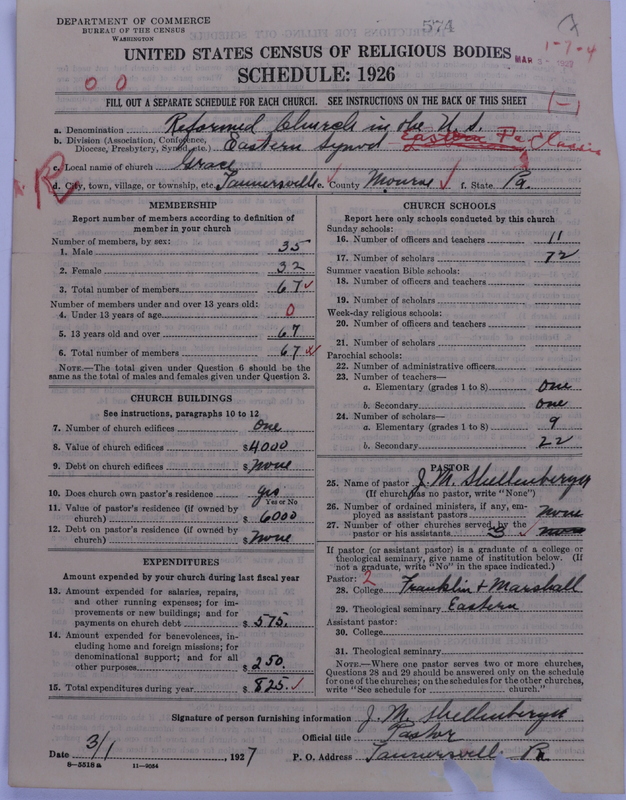 DEPARTMENT OF COMMERCE
BUREAU OF THE CENSUS
WASHINGTON
574
7
1-7-4
UNITED STATES CENSUS OF RELIGIOUS BODIES
MAR 5 1927
SCHEDULE: 1926
0 0
FILL OUT A SEPARATE SCHEDULE FOR EACH CHURCH. SEE INSTRUCTIONS ON THE BACK OF THIS SHEET
(-)
a. Denomination Reformed Church in the U. S.
b. Division (Association, Conference, Diocese, Presbytery, Synod, etc.) Eastern Synod - Eastern Pa. Classis
c. Local name of church Grace
R
d. City, town, village, or township, etc. Tannersville e. County Monroe f. State Pa.
MEMBERSHIP
Report number of members according to definition of
member in your church
Number of members, by sex:
1. Male 35
2. Female 32
3. Total number of members 67
Number of members under and over 13 years old:
4. Under 13 years of age 0
5. 13 years old and over 67
6. Total number of members 67
NOTE.—The total given under Question 6 should be the
same as the total of males and females given under Question 3.
CHURCH BUILDINGS
See instructions, paragraphs 10 to 12
7. Number of church edifices One
8. Value of church edifices $4000
9. Debt on church edifices $None
10. Does church own pastor's residence yes
Yes or No
11. Value of pastor's residence (if owned by
church) $ 6000
12. Debt on pastor's residence (if owned by
church) $None
EXPENDITURES
Amount expended by your church during last fiscal year
13. Amount expended for salaries, repairs,
and other running expenses; for im-
provements or new buildings; and for
payments on church debt $ 575.
14. Amount expended for benevolences, in-
cluding home and foreign missions; for
denominational support; and for all
other purposes $ 250.
15. Total expenditures during year $ 825.
CHURCH SCHOOLS
Report here only schools conducted by this church
Sunday schools:
16. Number of officers and teachers 11
17. Number of scholars 72
Summer vacation Bible schools:
18. Number of officers and teachers
19. Number of scholars
Week-day religious schools:
20. Number of officers and teachers
21. Number of scholars
Parochial schools:
22. Number of administrative officers
23. Number of teachers—
a. Elementary (grades 1 to 8) One
b. Secondary One
24. Number of scholars—
a. Elementary (grades 1 to 8) 9
b. Secondary 22
PASTOR
25. Name of pastor J. M. Shellenberger
(If church has no pastor, write "None")
26. Number of ordained ministers, if any, em-
ployed as assistant pastors None
27. Number of other churches served by the
pastor or his assistants 3 None
If pastor (or assistant pastor) is a graduate of a college or
theological seminary, give name of institution below. (If
not a graduate, write "No" in the space indicated.)
Pastor: 2
28. College Franklin & Marshall
29. Theological seminary Eastern
Assistant pastor:
30. College
31. Theological seminary
NOTE.—Where one pastor serves two or more churches,
Questions 28 and 29 should be answered only on the schedule
for one of the churches; on the schedules for the other churches,
write "See schedule for church."
Signature of person furnishing information J. M. Shellenberger
Official title Pastor
Date 3/1, 1927 P. O. Address Tannersville Pa
8-5518 a 11-9054